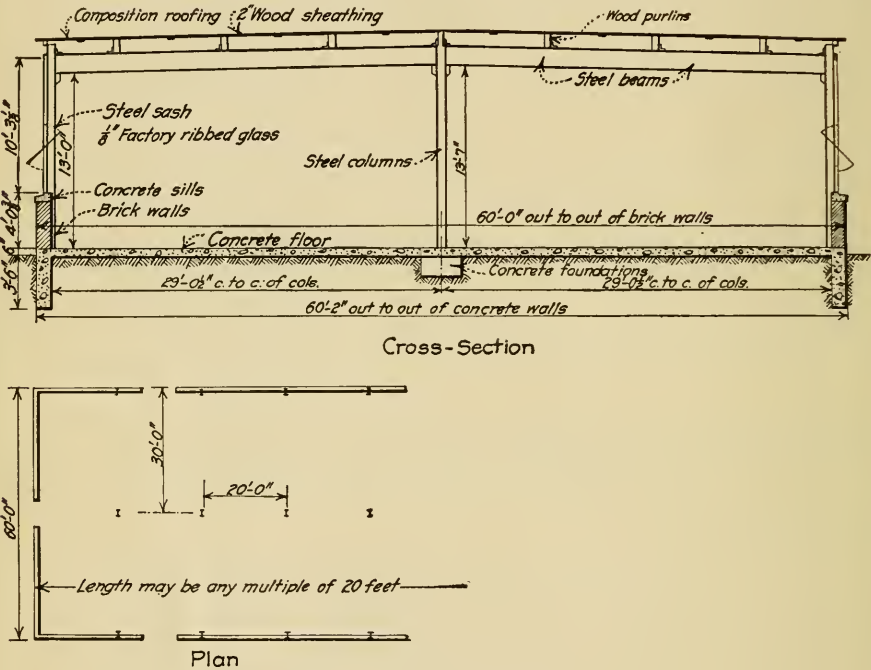 Composition roofing
2" Wood sheathing
Wood purlins
Steel beams
Steel sash
1/8" Factory ribbed glass
Steel columns
Concrete sills
Brick walls
Concrete floor
Concrete foundations
10'-3 1/8"
13'-0"
13'-7"
4'-0 3/8"
6"
3'-6"
60'-0" out to out of brick walls
29'-0 1/2" c. to c. of cols.
29'-0 1/2" c. to c. of cols.
60'-2" out to out of concrete walls
Cross-Section
60'-0"
30'-0"
20'-0"
Length may be any multiple of 20 feet
Plan